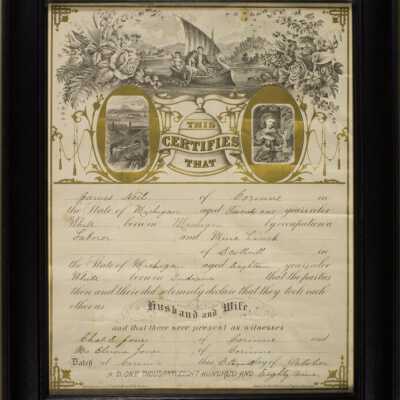 THIS
CERTIFIES
THAT
James of Corinne in
the State of Michigan aged years color
White born in Michigan by occupation a
Laborer and
of in
the State of Michigan aged years color
White born in Indiana that the parties
then and there did solemnly declare that they took each
other as Husband and Wife
and that there were present as witnesses
Chas of Corinne and
Mrs of Corinne
Dated at Corinne this day of October
A.D. ONE THOUSAND EIGHT HUNDRED AND Eighty Nine